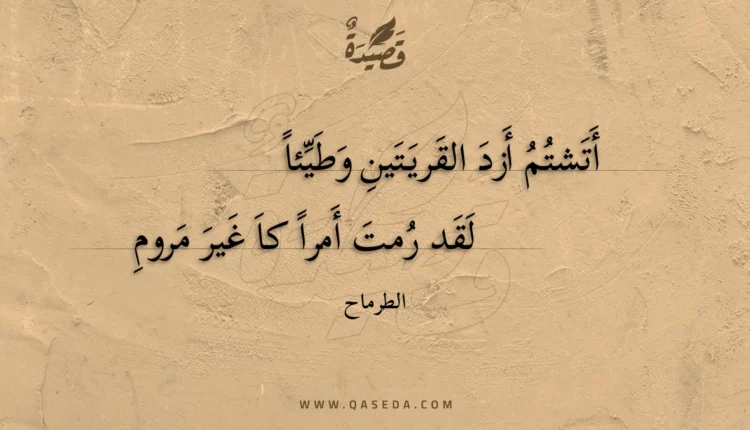 قَصِيْدَةٌ
أَتَشتُمُ أَزدَ القَريَتَينِ وَطَيِّئاً
لَقَد رُمتَ أَمراً كاَ غَيرَ مَرومِ
الطرماح
WWW.QASEDA.COM